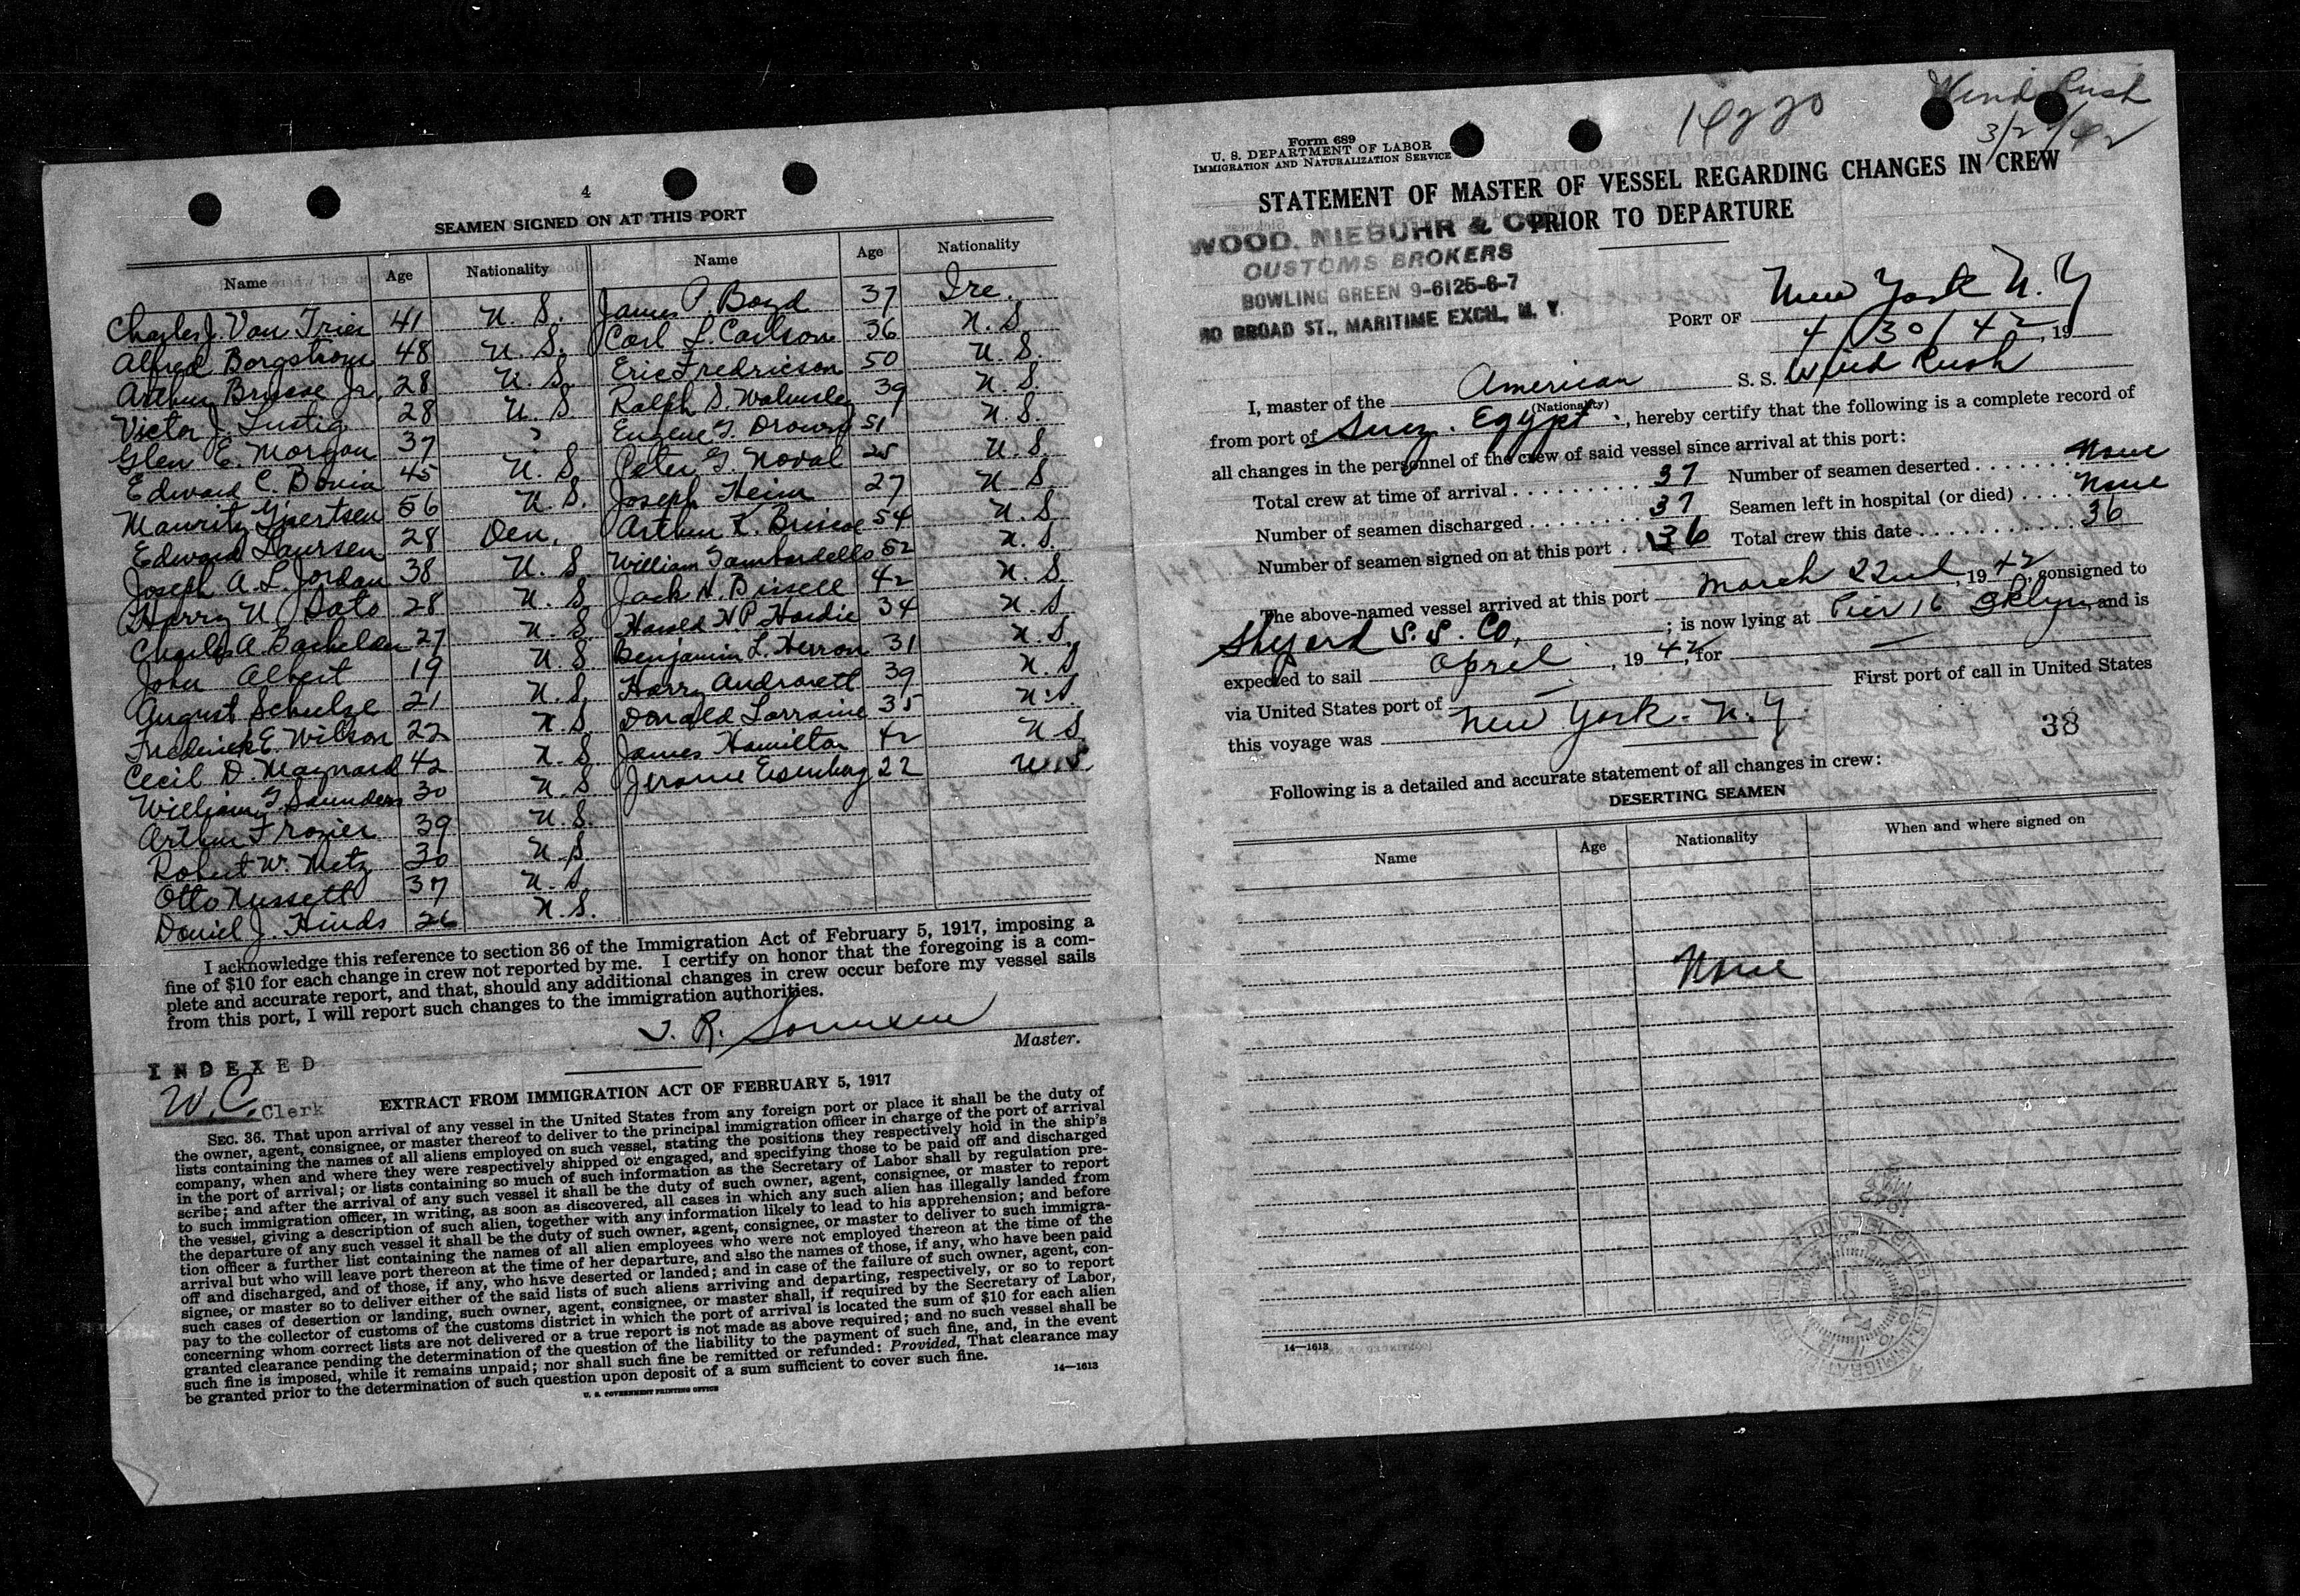 4
SEAMEN SIGNED ON AT THIS PORT
Name Age Nationality Name Age Nationality
Charles J. Van Trier 41 U. S. James P. Boyd 37 Ire.
Alfred Borgstrom 48 U. S. Carl L. Carlson 36 U. S.
Arthur Briscoe Jr. 28 U. S. Eric Fredricson 50 U. S.
Victor J. Lustig 28 U. S. Ralph S. Walmsley 39 U. S.
Glen E. Morgan 37 Eugene 51 U. S.
Edward C. 45 U. S. Peter G. Noval 25 U. S.
Mauritz Gjertsen 56 U. S. Joseph Heim 27 U. S.
Edward Laursen 28 Den. Arthur K. Briscoe 54 U. S.
Joseph A. L. Jordan 38 U. S. William Gambardello 52 U. S.
Harry N. 28 U. S. Jack N. Bissell 42 U. S.
Charles A. Bachelder 27 U. S. Harold N. P. Hardie 34 U. S.
John Albert 19 U. S. Benjamin L. Herron 31 U. S.
August Schulze 21 U. S. Harry Andrasett 39 U. S.
Frederick E. Wilson 22 U. S. Donald Lorraine 35 U. S.
Cecil D. Maynard 42 U. S. James Hamilton 42 U S
William G. Saunders 30 U. S. Jerome Eisenberg 22 U. S.
Arthur Frazier 39 U. S.
Robert W. Metz 30 U. S.
Otto Nussett 37 U. S.
Daniel J. Hinds 26 U. S.
I acknowledge this reference to section 36 of the Immigration Act of February 5, 1917, imposing a
fine of $10 for each change in crew not reported by me. I certify on honor that the foregoing is a com-
plete and accurate report, and that, should any additional changes in crew occur before my vessel sails
from this port, I will report such changes to the immigration authorities.
J. R. Sorensen
Master.
INDEXED
W.C. Clerk
EXTRACT FROM IMMIGRATION ACT OF FEBRUARY 5, 1917
SEC. 36. That upon arrival of any vessel in the United States from any foreign port or place it shall be the duty of
the owner, agent, consignee, or master thereof to deliver to the principal immigration officer in charge of the port of arrival
lists containing the names of all aliens employed on such vessel, stating the positions they respectively hold in the ship's
company, when and where they were respectively shipped or engaged, and specifying those to be paid off and discharged
in the port of arrival; or lists containing so much of such information as the Secretary of Labor shall by regulation pre-
scribe; and after the arrival of any such vessel it shall be the duty of such owner, agent, consignee, or master to report
to such immigration officer, in writing, as soon as discovered, all cases in which any such alien has illegally landed from
the vessel, giving a description of such alien, together with any information likely to lead to his apprehension; and before
the departure of any such vessel it shall be the duty of such owner, agent, consignee, or master to deliver to such immigra-
tion officer a further list containing the names of all alien employees who were not employed thereon at the time of the
arrival but who will leave port thereon at the time of her departure, and also the names of those, if any, who have been paid
off and discharged, and of those, if any, who have deserted or landed; and in case of the failure of such owner, agent, con-
signee, or master so to deliver either of the said lists of such aliens arriving and departing, respectively, or so to report
such cases of desertion or landing, such owner, agent, consignee, or master shall, if required by the Secretary of Labor,
pay to the collector of customs of the customs district in which the port of arrival is located the sum of $10 for each alien
concerning whom correct lists are not delivered or a true report is not made as above required; and no such vessel shall be
granted clearance pending the determination of the question of the liability to the payment of such fine, and, in the event
such fine is imposed, while it remains unpaid; nor shall such fine be remitted or refunded: Provided, That clearance may
be granted prior to the determination of such question upon deposit of a sum sufficient to cover such fine.
14—1613
U. S. GOVERNMENT PRINTING OFFICE
Wind Rush
3/22/42
14220
Form 689
U. S. DEPARTMENT OF LABOR
IMMIGRATION AND NATURALIZATION SERVICE
STATEMENT OF MASTER OF VESSEL REGARDING CHANGES IN CREW
PRIOR TO DEPARTURE
WOOD, NIEBUHR & CO.
CUSTOMS BROKERS
BOWLING GREEN 9-6125-6-7
80 BROAD ST., MARITIME EXCH., N. Y.
PORT OF New York N. Y
4/30/42, 19
I, master of the American S. S. Wind Rush
(Nationality)
from port of Suez. Egypt, hereby certify that the following is a complete record of
all changes in the personnel of the crew of said vessel since arrival at this port:
Total crew at time of arrival 37 Number of seamen deserted None
Number of seamen discharged 37 Seamen left in hospital (or died) None
Number of seamen signed on at this port 36 Total crew this date 36
The above-named vessel arrived at this port March 22nd, 1942, consigned to
Shepard S. S. Co.; is now lying at Pier 16 Bklyn, and is
expected to sail April, 1942, for
via United States port of First port of call in United States
this voyage was New York. N. Y.
38
Following is a detailed and accurate statement of all changes in crew:
DESERTING SEAMEN
Name Age Nationality When and where signed on
None
14—1613